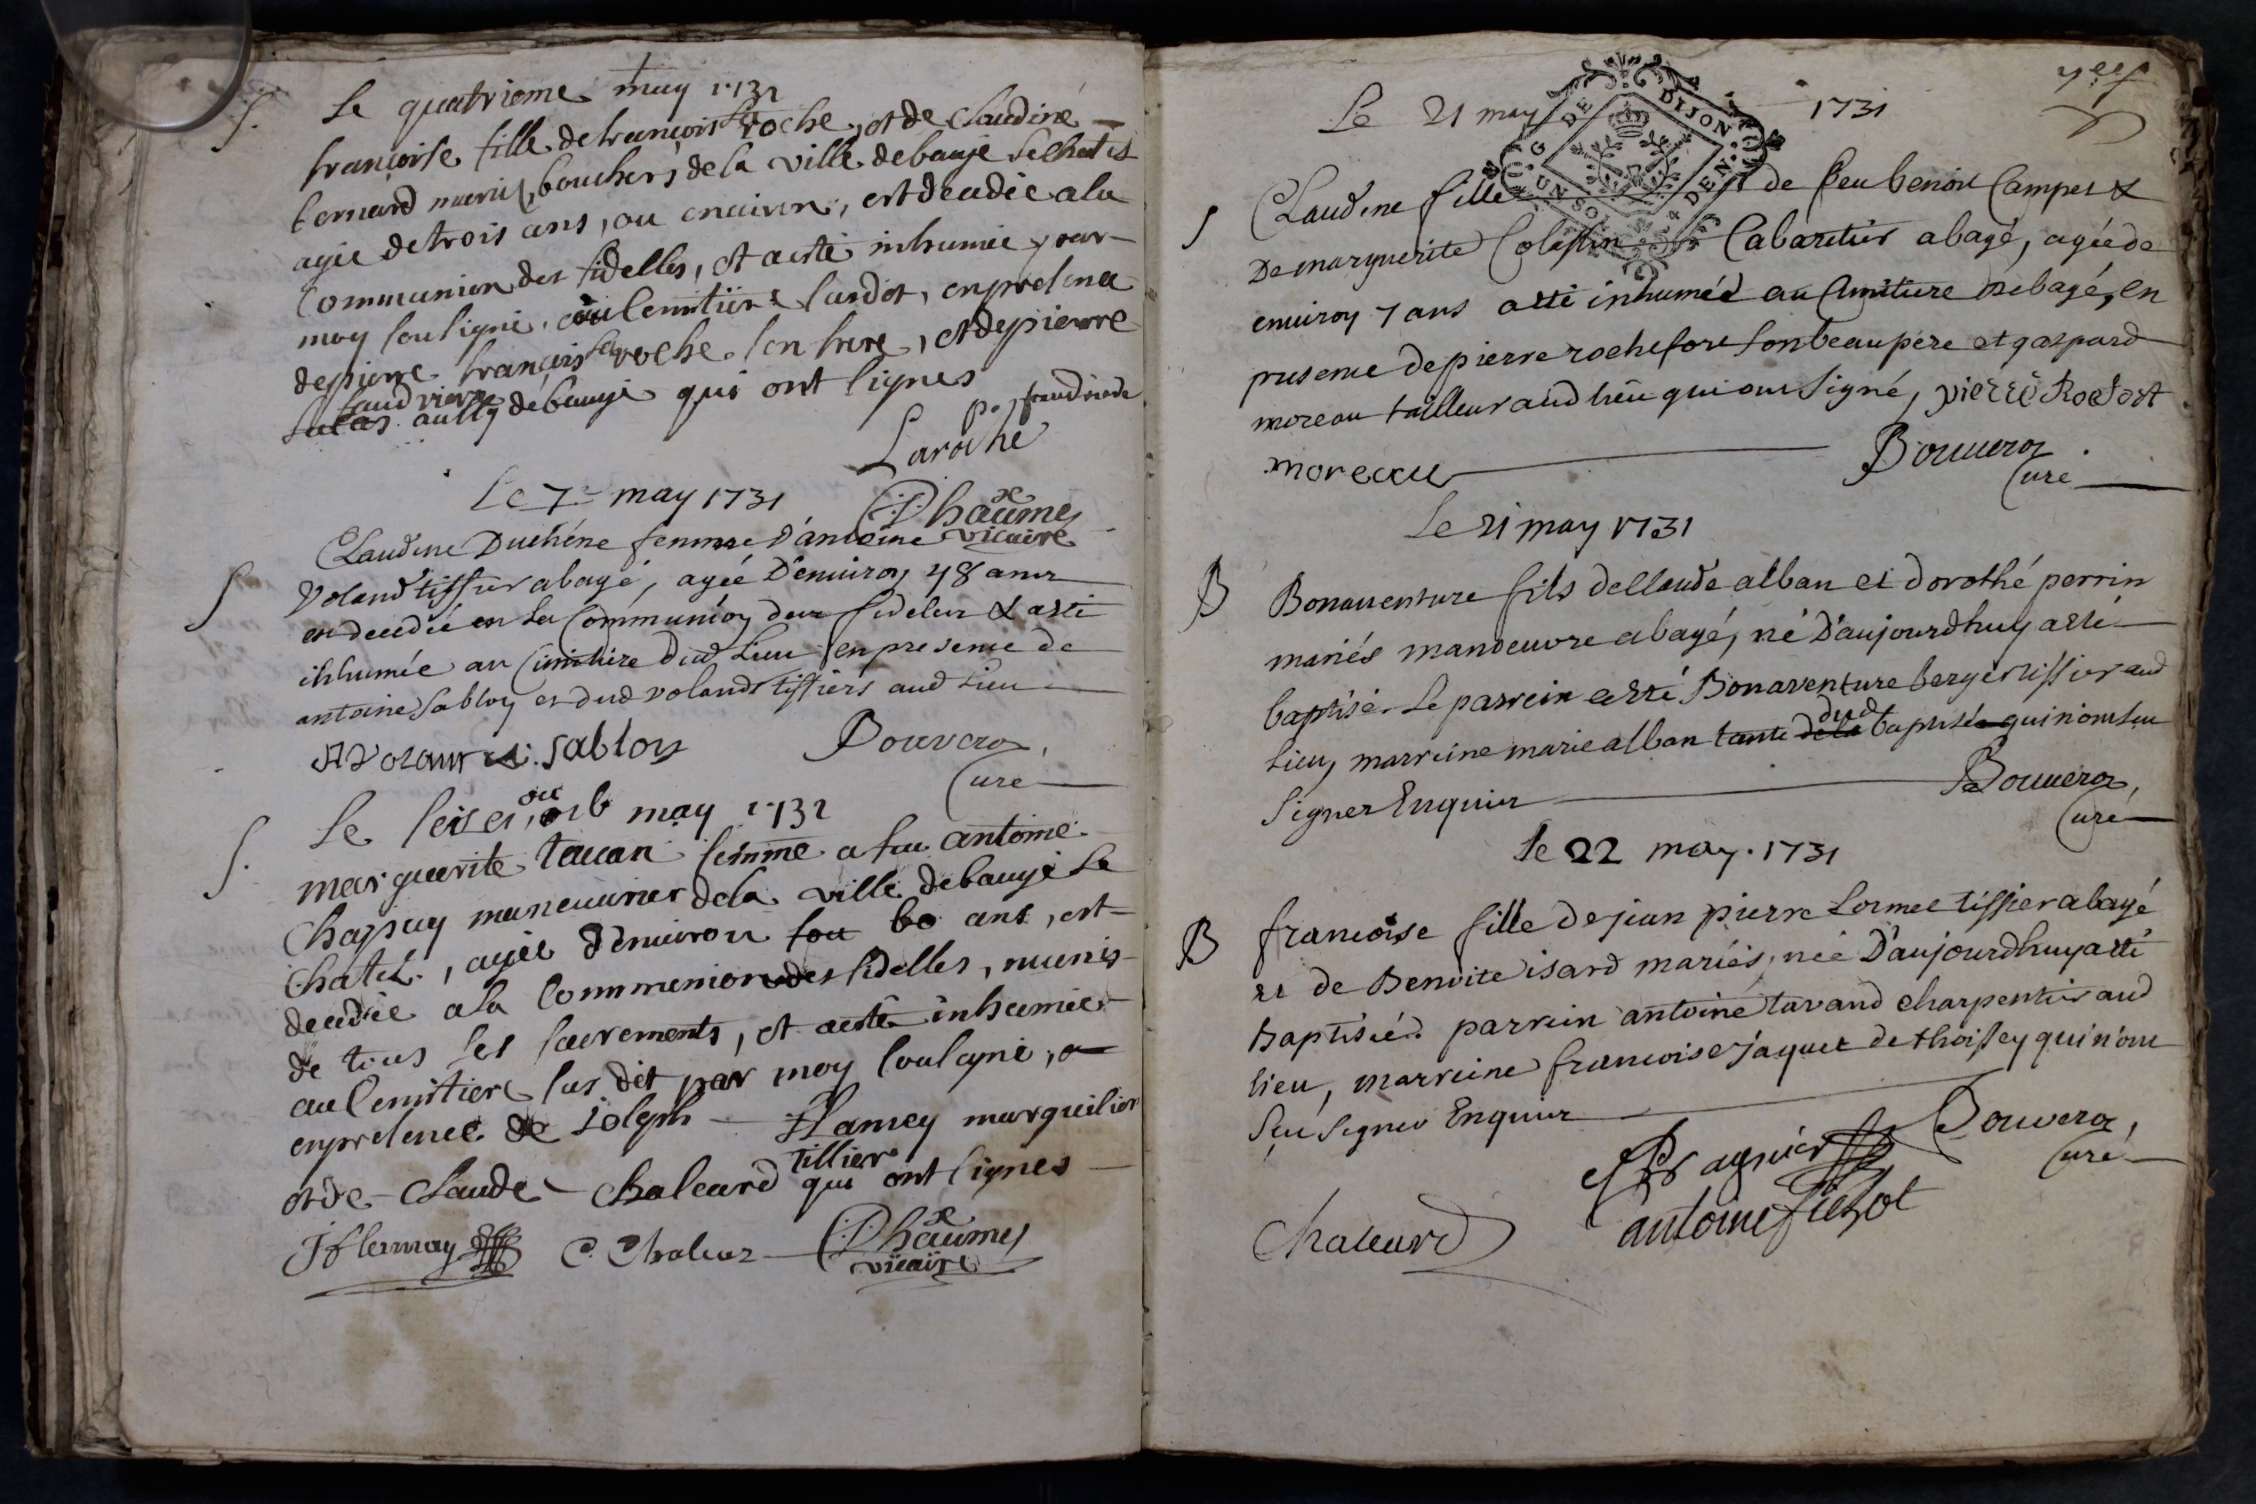 S. Le quatrieme may 1731
francoise fille de francois la roche, et de claudine
bernard mariés, bouchers de la ville de baugé le chatel
agée de trois ans, ou environ, est decedée a la
Communion des fidelles, et aesté inhumée par
moy sousigné, au Cemitiere susdit, en presence
de pierre francois la roche son frere, et de pierre
faudriere
aussy de baugé qui ont signes
p. faudriere
Laroche
Le 7e may 1731
Dhaumes
vicaire
S Claudine Duchéne femme d'antoine
Voland tissier a bagé, agée d'environ 48 ans
est decedée en la Communion des fideles & a esté
inhumée au Cimitiere dud Lieu en presence de
antoine Sablon et dud voland tissiers aud Lieu
A Volant A. Sablon Bouveron,
Curé
S. Le seise, ou 16 may 1731
marguerite tavan femme a feu antoine
Chapuy maneuvrier de la ville de baugé Le
Chatel, agée d'environ 60 ans, est
decedée a la Communion des fidelles, munis
de tous les sacrements, et aesté inhumée
au Cemitiere sus dit par moy sousigné,
en presence de joseph flamey marguilier
tissier
et de Claude Chaleard qui ont signes
J flamay C. Chalear Dhaumes
vicaire
Le 21 may 1731
G DE DIJON
UN SOL 4 DEN
S Claudine fille de feu benoit Campet &
De marguerite Colassin Cabaretier a bagé, agée de
environ 7 ans a esté inhumée au Cimitiere de bagé, en
presence de pierre rochefort son beaupere et gaspard
moreau tailleur aud lieu qui ont signé, pierre Rochefort
moreau Bouveron
Curé
Le 21 may 1731
B Bonaventure fils de Claude alban et dorothé perrin
mariés manoeuvre a bagé, né D'aujourdhuy a esté
baptisé. Le parrein a esté Bonaventure berger tissier aud
dud
Lieu, marreine marie alban tante de la baptisée qui n'ont seu
Signer Enquis Bouveron,
Curé
Le 22 may. 1731
B francoise fille de jean pierre Lormet tissier a bagé
et de Benoite isard mariés, née D'aujourdhuy a esté
Baptisée. parrein antoine tavand charpentier aud
lieu, marreine francoise jaquet de thoissey qui n'ont
Seu Signer Enquis Bouveron,
Curé
Chaleard
antoine